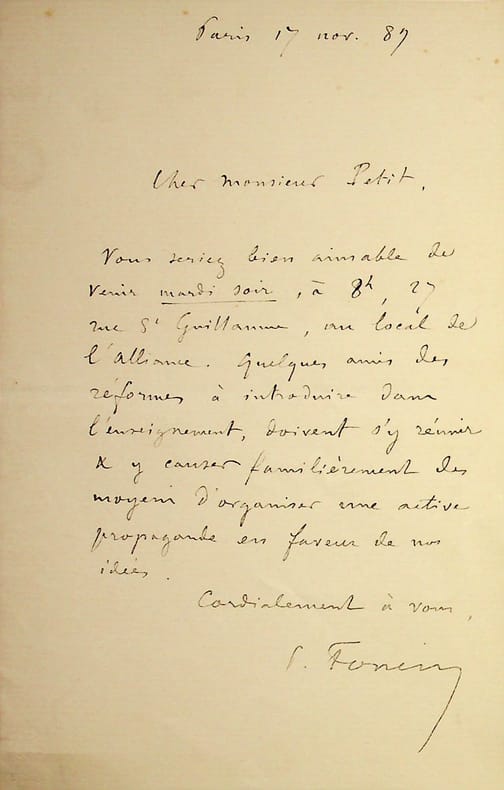 Paris 17 nov. 89
Cher Monsieur Petit,
Vous seriez bien aimable de
venir mardi soir, à 8h, 27
rue St Guillaume, au local de
l'Alliance. Quelques amis des
réformes à introduire dans
l'enseignement, doivent s'y réunir
& y causer familièrement des
moyens d'organiser une active
propagande en faveur de nos
idées.
Cordialement à vous,
P. Foncin